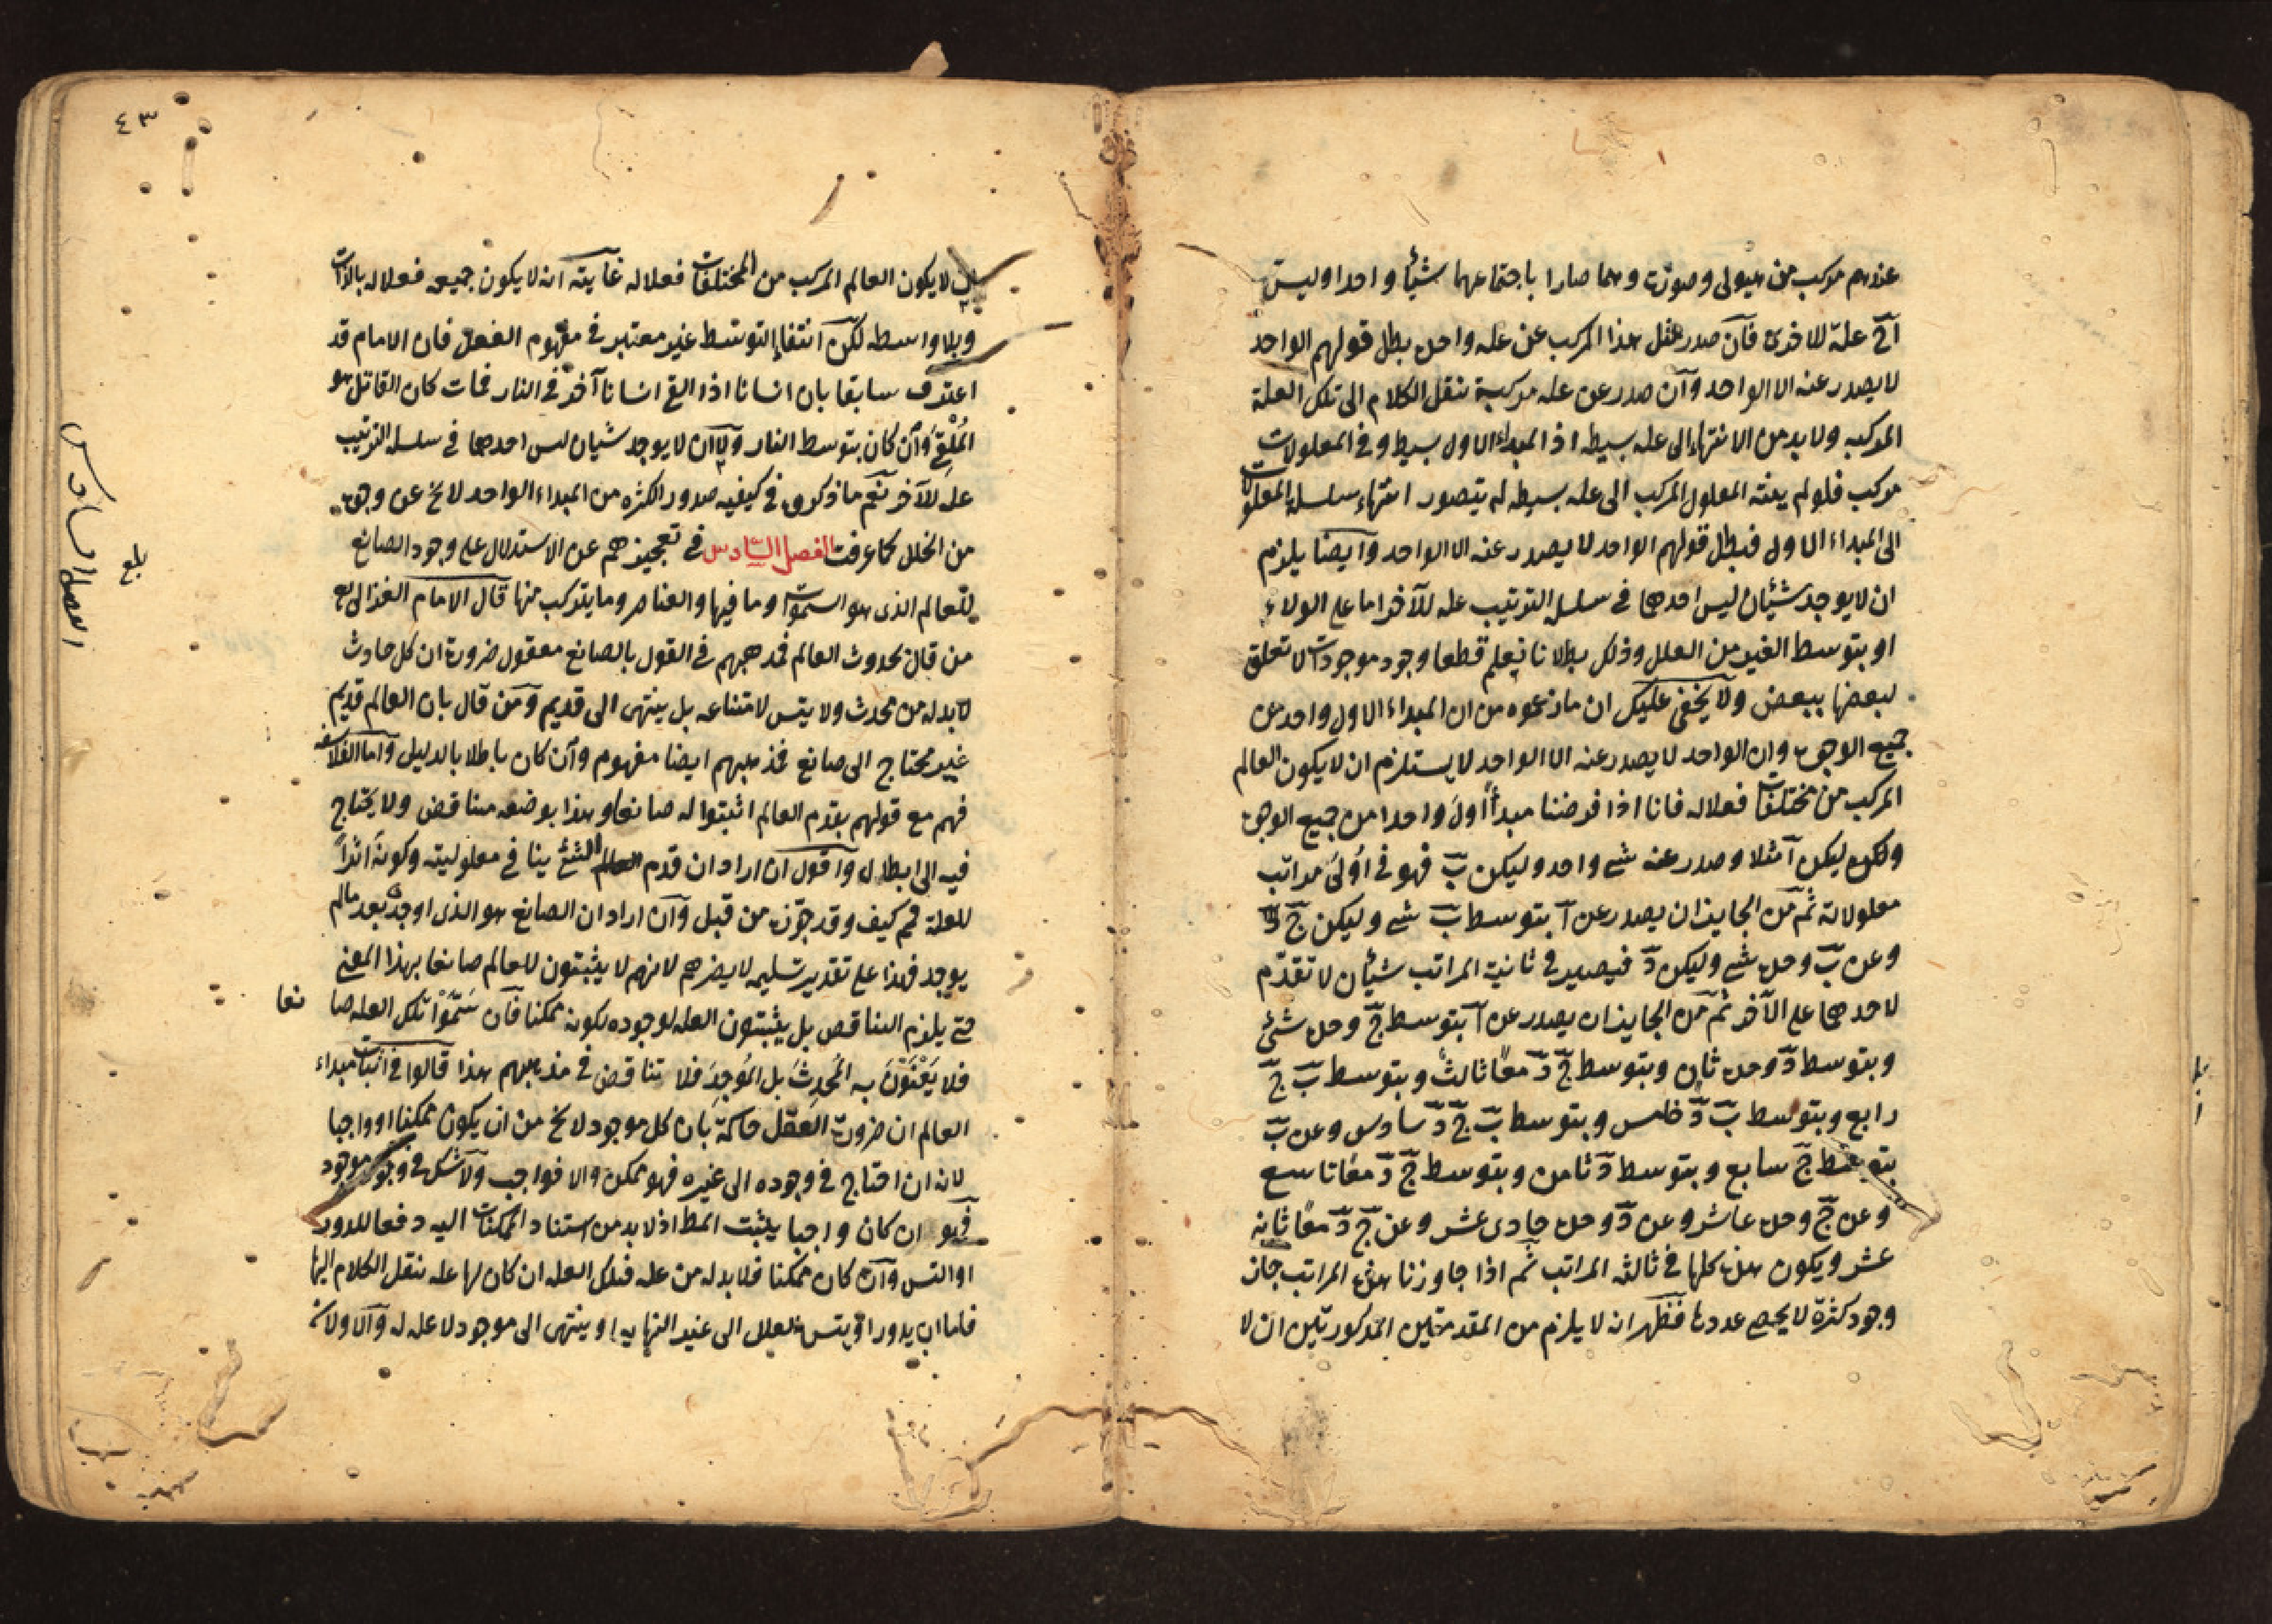 عندهم مركب من هيولى وصورة وهما صارا باجتماعهما شيأ واحدا وليس
احٓ علة للاخرى فآن صدر مثل هذا المركب عن علة واحدة بطل قولهم الواحد
لا يصدر عنه الا الواحد وآن صدر عن علة مركبة ننقل الكلام الى تلك العلة
المركبه ولا بد من الانتهاء الى علة بسيطه اذ المبداء الاول بسيط وفى المعلولات
مركب فلو لم ينته المعلول المركب الى علة بسيطه لم يتصور انتهاء سلسلة المعلولات
الى المبداء الاول فبطل قولهم الواحد لا يصدر عنه الا الواحد وآيضا يلزم
ان لا يوجد شيئان ليس احدهما فى سلسلة الترتيب علة للآخر اما على الولاء
او بتوسط الغير من العلل وذلك بطلانا نعلم قطعا وجود موجودات لا تعلق
لبعضها ببعض ولآ يخفى عليك ان ما زعموه من ان المبداء الاول واحد من
جميع الوجوه وان الواحد لا يصدر عنه الا الواحد لا يستلزم ان لا يكون العالم
المركب من مختلفات فعلا له فانا اذا فرضنا مبدأ اول واحدا من جميع الوجوه
ولكن ليكن آ مثلا وصدر عنه شئ واحد وليكن بٓ فهو فى اولى مراتب
معلولاته ثم من الجايز ان يصدر عن آ بتوسط بٓ شئ وليكن جٓ
وعن بٓ وحده شئ وليكن دٓ فيصير فى ثانية المراتب شيئان لا تقدم
لاحدهما على الآخر ثم من الجايز ان يصدر عن آ بتوسط جٓ وحده شئ
وبتوسط دٓ وحده ثان وبتوسط جٓ دٓ معًا ثالث وبتوسط بٓ جٓ
رابع وبتوسط بٓ دٓ خامس وبتوسط بٓ جٓ دٓ سادس وعن بٓ
بتوسط جٓ سابع وبتوسط دٓ ثامن وبتوسط جٓ دٓ معًا تاسع
وعن جٓ وحده عاشر وعن دٓ وحده حادى عشر وعن جٓ دٓ معًا ثانى
عشر ويكون هذه كلها فى ثالثة المراتب ثم اذا جاوزنا هذه المراتب جاز
وجود كثرة لا يحصى عددها فظهر انه لا يلزم من المقدمتين المذكورتين ان لا
لا يكون العالم المركب من المختلفات فعلا له غايته ان لا يكون جميعه فعلا له بالذات
وبلا واسطه لكن انتفاء التوسط غير معتبر فى مفهوم الفعل فان الامام قد
اعترف سابقا بان انسانا اذا القى انسانا آخر فى النار فمات كان القاتل هو
المُلقِى وآن كان بتوسط النار ولا ان لا يوجد شيئان ليس احدهما فى سلسلة الترتيب
علة للآخر نعم ما ذكروه فى كيفيه صدور الكثره من المبداء الواحد لا يخ عن وجوه
من الخلل كما عرفت الفصل السادس فى تعجيزهم عن الاستدلال على وجود الصانع
للعالم الذى هو السموات وما فيها والعناصر وما يتركب منها قال الامام الغزالى
من قال بحدوث العالم فمذهبهم فى القول بالصانع معقول ضرورة ان كل حادث
لا بد له من محدث ولا يتس لامتناعه بل ينتهى الى قديم ومن قال بان العالم قديم
غير محتاج الى صانع فمذهبهم ايضا مفهوم وآن كان باطلا بالدليل وآما الفلاسفه
فهم مع قولهم بقدم العالم اثبتوا له صانعا وهذا بوضعه مناقض ولا يحتاج
فيه الى ابطال وآقول ان اراد ان قدم الشئ ينافى معلوليته وكونه اثرًا
للعلة فهم كيف وقد جوّزه من قبل وآن اراد ان الصانع هو الذى اوجده بعد ما لم
يوجد فهذا على تقدير تسليمه لا يضرهم لانهم لا يثبتون للعالم صانعا بهذا المعنى
حتى يلزم التناقص بل يثبتون العلة لوجوده لكونه ممكنا فآن سَمَّوْا تلك العلة صا نعا
فلا يَعْنَوْنَ به المُحدِث بل المُوجِدَ فلا تناقض فى مذهبهم هذا قالوا فى اثبات مبداء
العالم ان ضرورة العقل حاكمة بان كل موجود لا يخ من ان يكون ممكنا او واجبا
لانه ان احتاج فى وجوده الى غيره فهو ممكن والا فواجب ولآ شك فى وجود موجود
فهو ان كان واجبا يثبت المط اذ لا بد من استناد الممكنات اليه دفعا للدور
او التس وآن كان ممكنا فلا بد له من علة فتلك العلة ان كان لها علة ننقل الكلام اليها
فاما ان يدور او يتس العلل الى غير النهايه او ينتهى الى موجود لا علة له وآلاولان
٤٣
الفصل السادس
بلغ